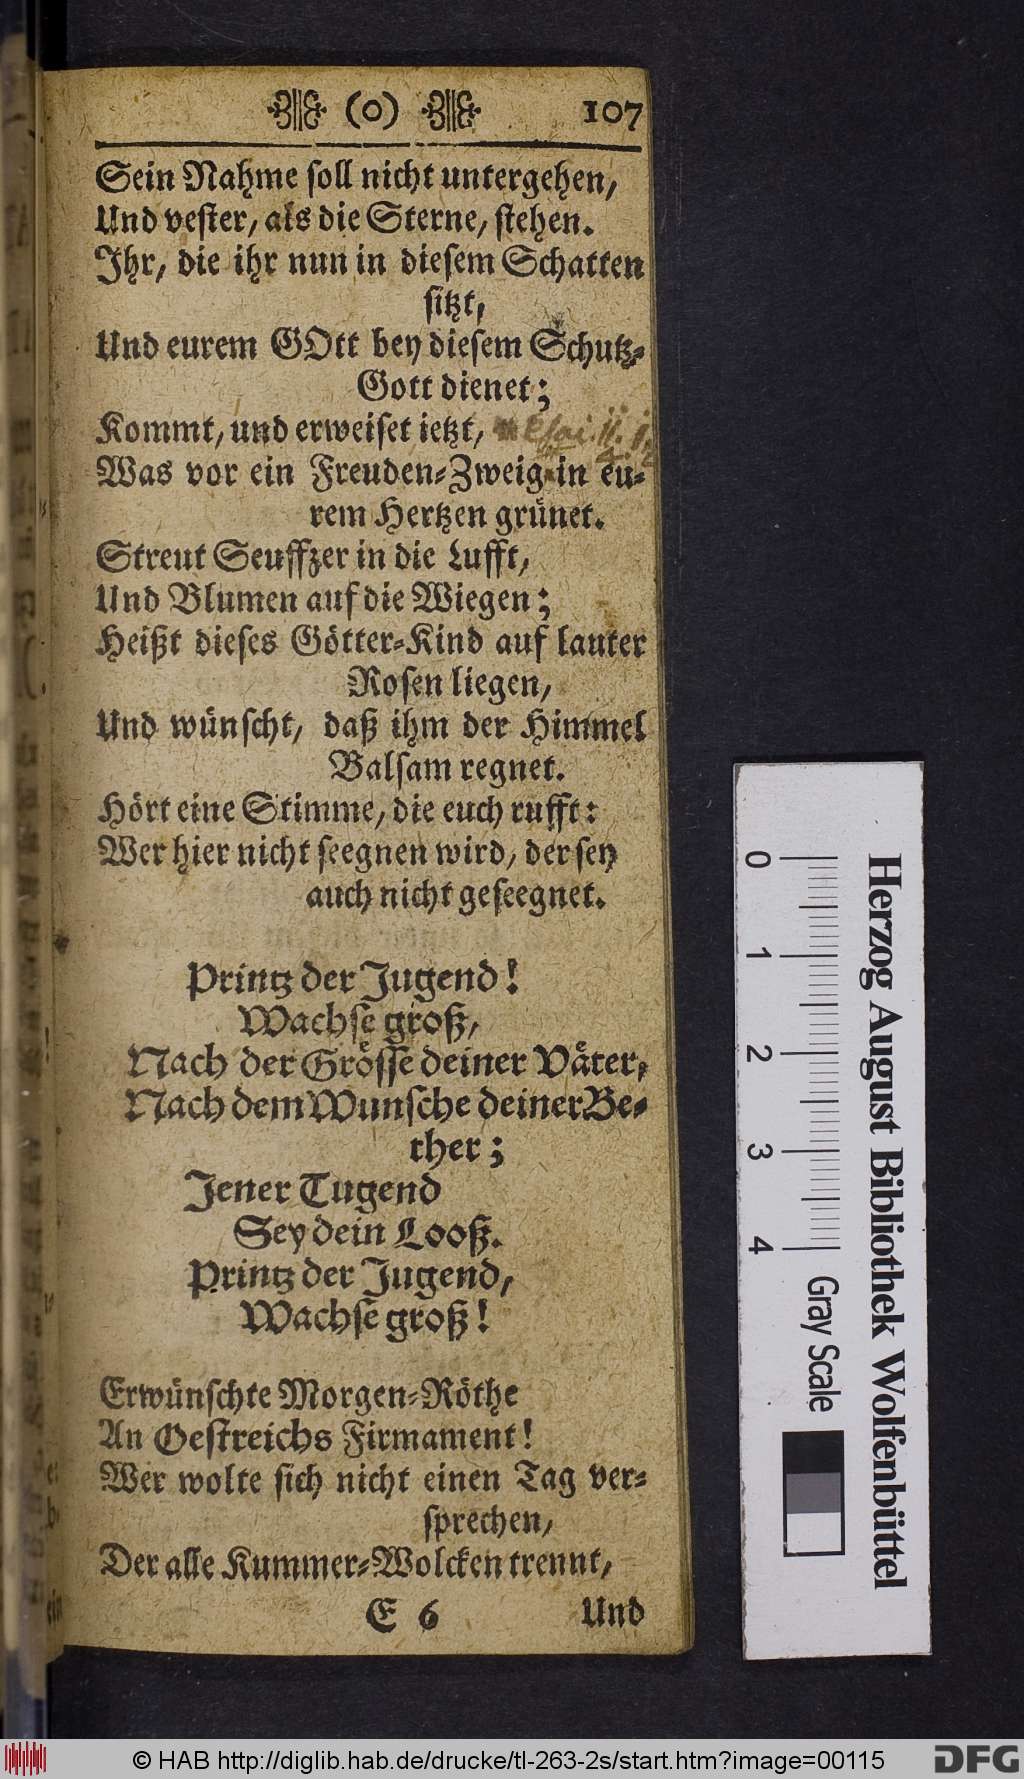 (o) 107
Sein Nahme soll nicht untergehen,
Und vester, als die Sterne, stehen.
Ihr, die ihr nun in diesem Schatten
sitzt,
Und eurem GOtt bey diesem Schutz-
Gott dienet;
Kommt, und erweiset ietzt,
Was vor ein Freuden-Zweig in eu-
rem Hertzen grünet.
Streut Seuffzer in die Lufft,
Und Blumen auf die Wiegen;
Heißt dieses Götter-Kind auf lauter
Rosen liegen,
Und wünscht, daß ihm der Himmel
Balsam regnet.
Hört eine Stimme, die euch rufft:
Wer hier nicht seegnen wird, der sey
auch nicht geseegnet.
Printz der Jugend!
Wachse groß,
Nach der Grösse deiner Väter,
Nach dem Wunsche deiner Be-
ther;
Jener Tugend
Sey dein Looß.
Printz der Jugend,
Wachse groß!
Erwünschte Morgen-Röthe
An Oestreichs Firmament!
Wer wolte sich nicht einen Tag ver-
sprechen,
Der alle Kummer-Wolcken trennt,
E 6 Und
Herzog August Bibliothek Wolfenbüttel
0 1 2 3 4 Gray Scale
© HAB http://diglib.hab.de/drucke/tl-263-2s/start.htm?image=00115
DFG